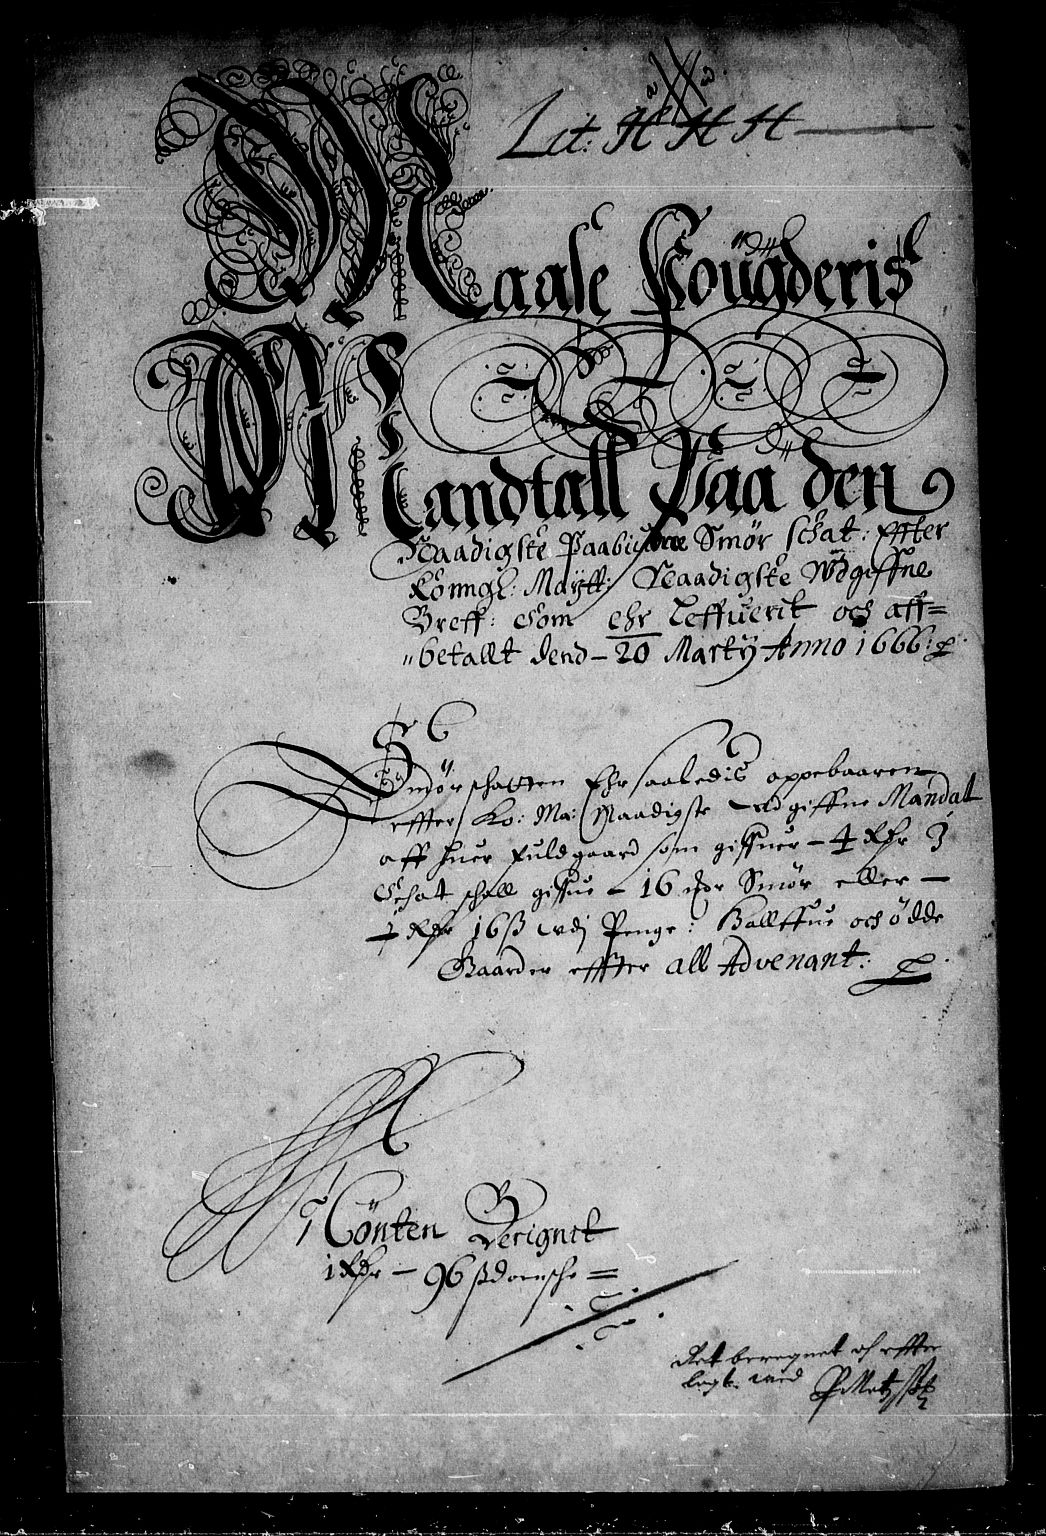 Lit: H H H
Maase Fougderis
Mandtall Paa den
Naadigste Paabudne Smör schat: Effter
Konngl: Maÿtt: Naadigste Wdgiffne
Breff: Som ehr Leffuerit och aff=
betallt dend - 20 Marty Anno 1666:
Smörschatten Ehr saaledis oppebaaren
effter Ko: Ma: Naadigste wdgiffne Mandat
aff huer fuldgaard som giffuer - 4 Rdr J
Schat schall giffue - 16 Smör eller -
1 Rdr 16 ß wdj Penge: Hallffue och ödde
Gaarder effter all Advenant:
J Mönten Berignet
1 Rdr - 96 ß danische =
Ret beregnet